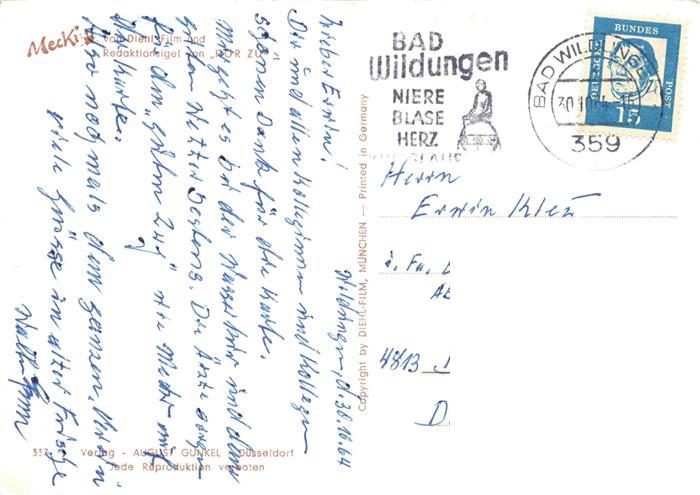 Mecki
von Diehl-Film und
Redaktionsigel von "HÖR ZU"
Wildungen, d. 30.10.64
Lieber Erwin!
Dir und allen Kolleginnen und Kollegen
schönen Dank für die Karte.
Mir geht es bei der Wasserkur und dem
guten Wetter bestens. Die Ärzte sorgen
für den "guten Zug" wie Mecki auf
der Karte.
Also nochmals dem ganzen
viele Grüsse in alter Frische
Walter
337
Verlag - AUGUST GUNKEL - Düsseldorf
Jede Reproduktion verboten
Copyright by DIEHL-FILM, MÜNCHEN — Printed in Germany
BAD
Wildungen
NIERE
BLASE
HERZ
BAD WILDUNGEN
30.10.64
359
DEUTSCHE
BUNDES
POST
15
Herrn
Erwin
i. Fa.
4813
D